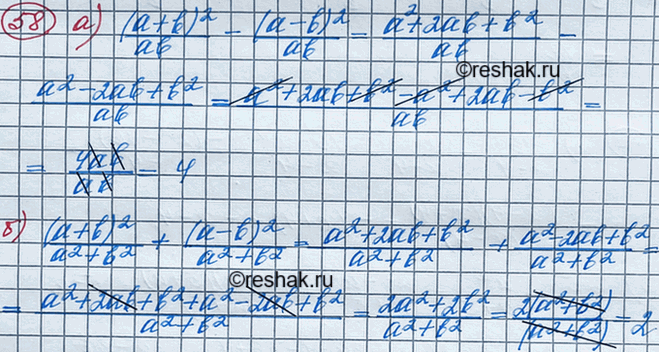 58 а) (a+b)²/ab - (a-b)²/ab = a²+2ab+b²/ab -
a²-2ab+b²/ab = a²+2ab+b²-a²+2ab-b²/ab =
©reshak.ru
= 4ab/ab = 4
б) (a+b)²/a²+b² + (a-b)²/a²+b² = a²+2ab+b²/a²+b² + a²-2ab+b²/a²+b² =
©reshak.ru
= a²+2ab+b²+a²-2ab+b²/a²+b² = 2a²+2b²/a²+b² = 2(a²+b²)/(a²+b²) = 2